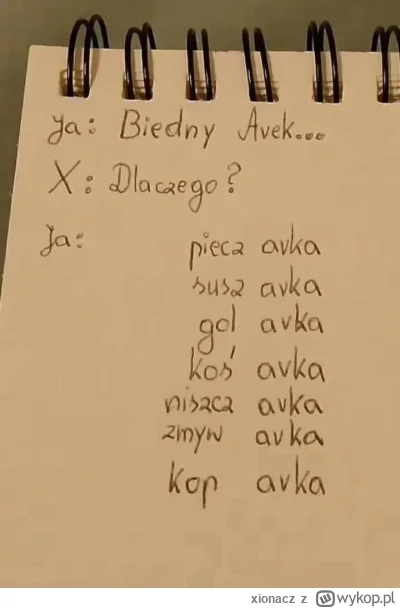 Ja: Biedny Avek...
X: Dlaczego?
Ja: piecz avka
susz avka
gol avka
koś avka
niszcz avka
zmyw avka
kop avka
xionacz z wykop.pl